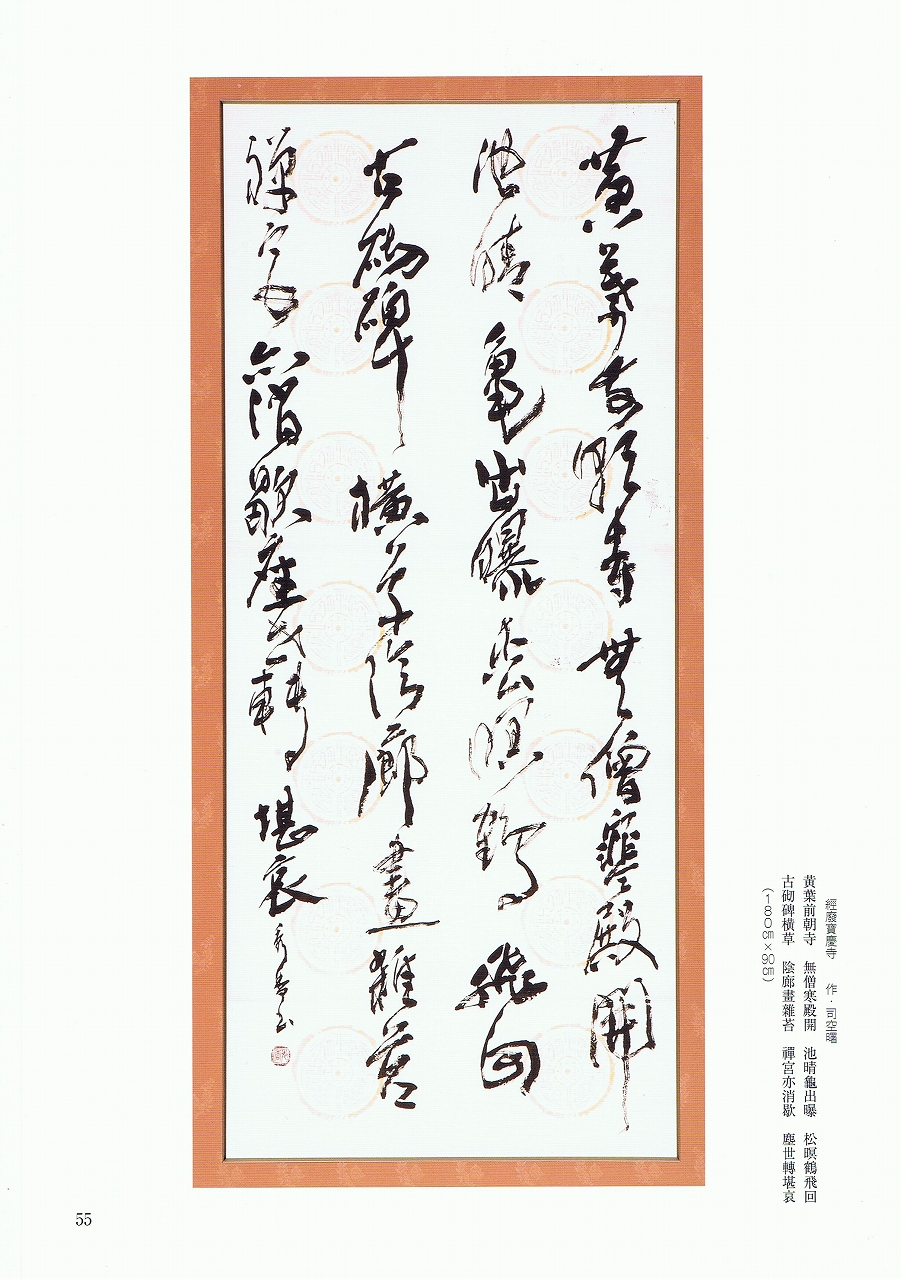 黄葉前朝寺無僧寒殿開
池晴亀出曝松暝鶴飛回
古砌碑横草陰廊畫雜苔
禪宮亦消歇塵世轉堪哀
經廢寶慶寺 作・司空曙
黃葉前朝寺 無僧寒殿開 池晴龜出曝 松暝鶴飛回
古砌碑橫草 陰廊畫雜苔 禪宮亦消歇 塵世轉堪哀
(180㎝×90㎝)
55